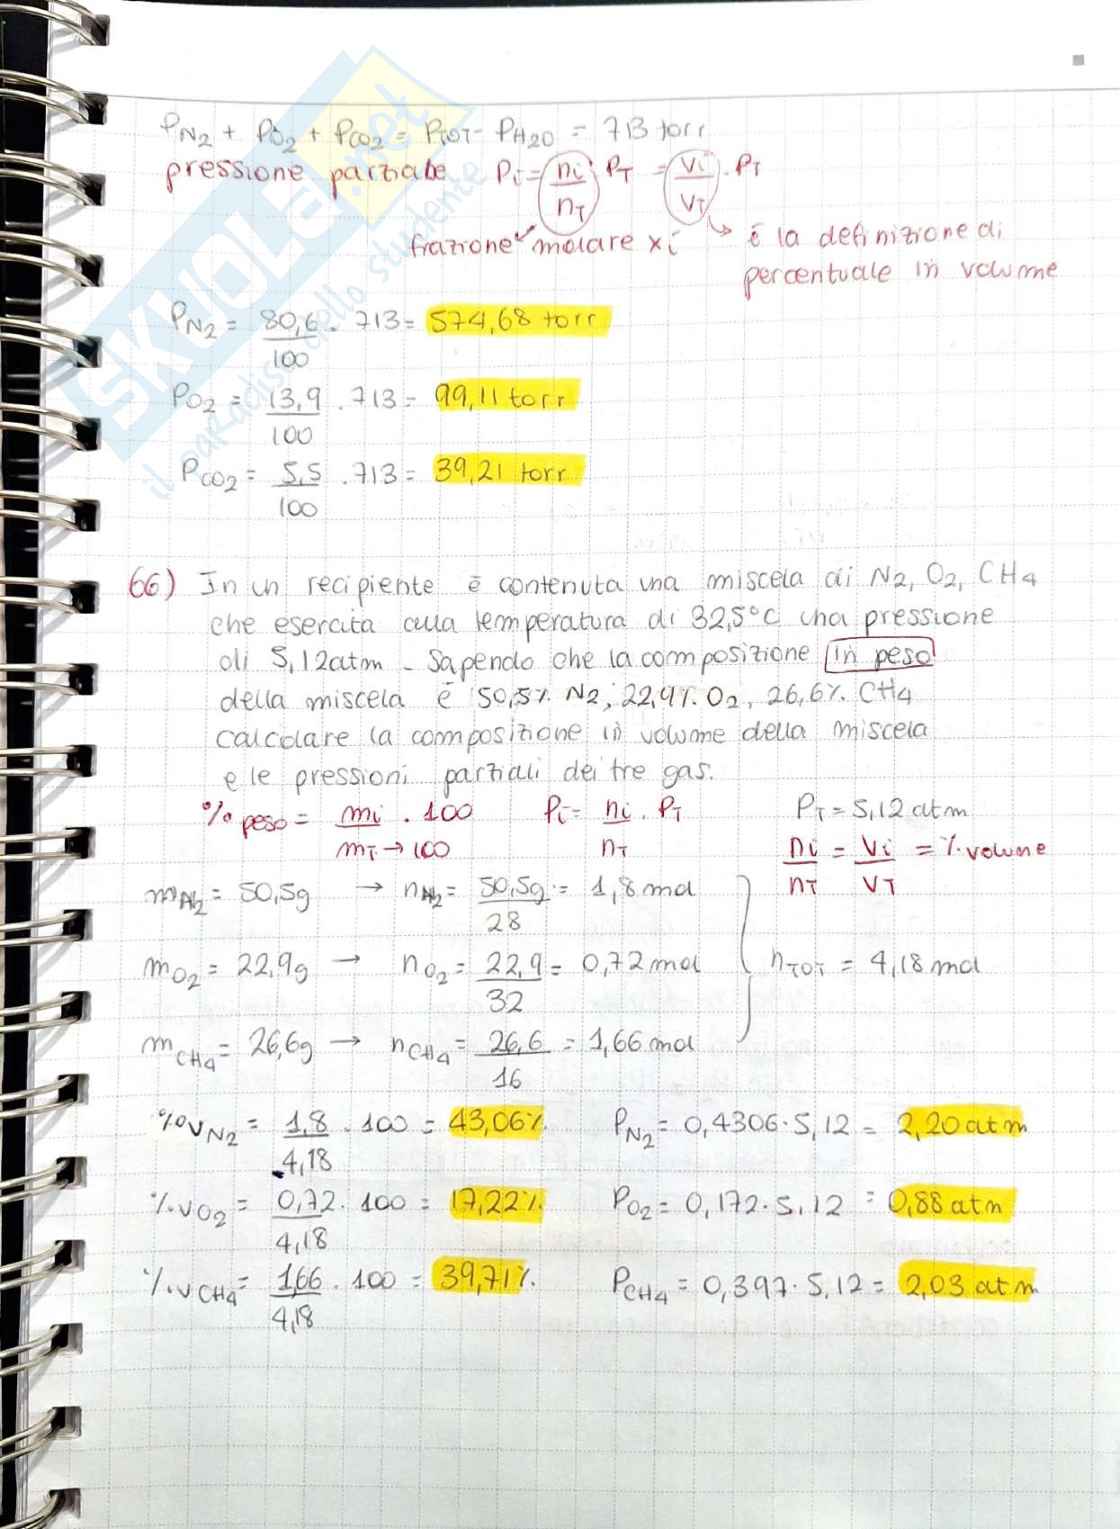 P_N2 + P_O2 + P_CO2 = P_TOT - P_H2O = 713 torr
pressione parziale Pi = ni/nT · PT = Vi/VT · PT
frazione molare xi → è la definizione di
percentuale in volume
P_N2 = 80,6/100 · 713 = 574,68 torr
P_O2 = 13,9/100 · 713 = 99,11 torr
P_CO2 = 5,5/100 · 713 = 39,21 torr
SKUOLA.net
il paradiso dello studente
66) In un recipiente è contenuta una miscela di N2, O2, CH4
che esercita alla temperatura di 32,5°C una pressione
di 5,12 atm. Sapendo che la composizione in peso
della miscela è 50,5% N2, 22,9% O2, 26,6% CH4
calcolare la composizione in volume della miscela
e le pressioni parziali dei tre gas.
% peso = mi/mT → 100 · 100 Pi = ni/nT · PT PT = 5,12 atm
ni/nT = Vi/VT = % volume
m_N2 = 50,5g → n_N2 = 50,5g/28 = 1,8 mol
m_O2 = 22,9g → n_O2 = 22,9/32 = 0,72 mol n_TOT = 4,18 mol
m_CH4 = 26,6g → n_CH4 = 26,6/16 = 1,66 mol
%V_N2 = 1,8/4,18 · 100 = 43,06% P_N2 = 0,4306 · 5,12 = 2,20 atm
%V_O2 = 0,72/4,18 · 100 = 17,22% P_O2 = 0,172 · 5,12 = 0,88 atm
%V_CH4 = 1,66/4,18 · 100 = 39,71% P_CH4 = 0,397 · 5,12 = 2,03 atm